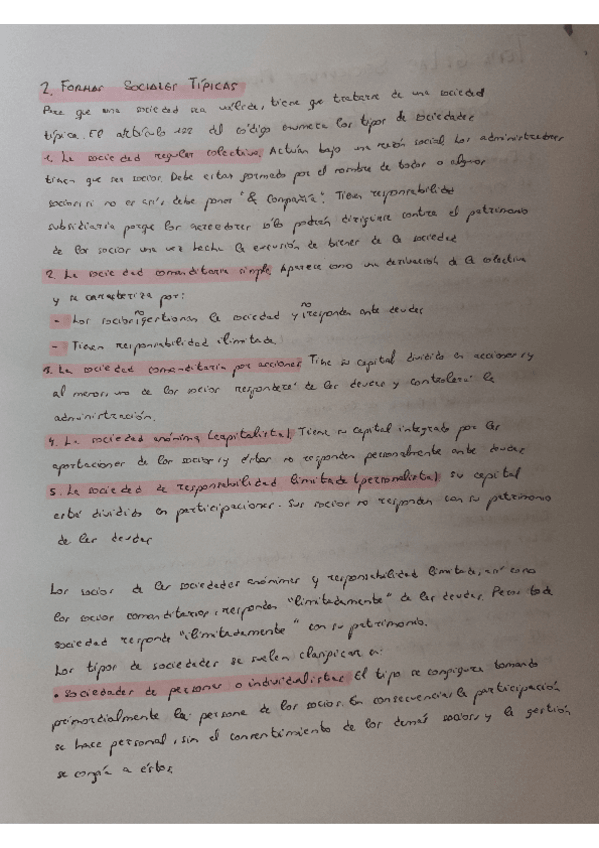 2. FORMAS SOCIALES TÍPICAS
Para que una sociedad sea válida, tiene que tratarse de una sociedad
típica. El artículo 122 del código enumera los tipos de sociedades
1. La sociedad regular colectiva. Actúan bajo una razón social. Los administradores
tienen que ser socios. Debe estar formado por el nombre de todos o algunos
socios, si no es así, debe poner "& Compañía". Tienen responsabilidad
subsidiaria porque los acreedores sólo podrán dirigirse contra el patrimonio
de los socios una vez hecha la excursión de bienes de la sociedad
2. La sociedad comanditaria simple. Aparece como una derivación de la colectiva
y se caracteriza por:
- Los socios no gestionan la sociedad y no responden ante deudas
- Tienen responsabilidad ilimitada
3. La sociedad comanditaria por acciones. Tine su capital dividido en acciones, y
al menos, uno de los socios responderá de las deudas y controlará la
administración.
4. La sociedad anónima (capitalista). Tiene su capital integrado por las
aportaciones de los socios, y éstos no responden personalmente ante deudas
5. La sociedad de responsabilidad limitada (personalista). su capital
está dividido en participaciones. Sus socios no responden con su patrimonio
de las deudas
Los socios de las sociedades anónimas y responsabilidad limitada, así como
los socios comanditarios, responden "limitadamente" de las deudas. Pero toda
sociedad responde "ilimitadamente" con su patrimonio.
Los tipos de sociedades se suelen clasificar en:
• Sociedades de personas o individualistas. El tipo se configura tomando
primordialmente la persona de los socios. En consecuencia, la participación
se hace personal, sin el consentimiento de los demás socios, y la gestión
se confía a éstos.